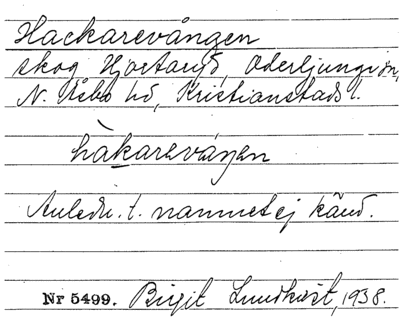 Hackarevången
skog Hjortaryd, Oderljunga sn,
N. Åsbo hd, Kristianstads l.
hàkareváŋen
Anledn. t. namnet ej känd.
Nr 5499. Birgit Lundkvist, 1938.